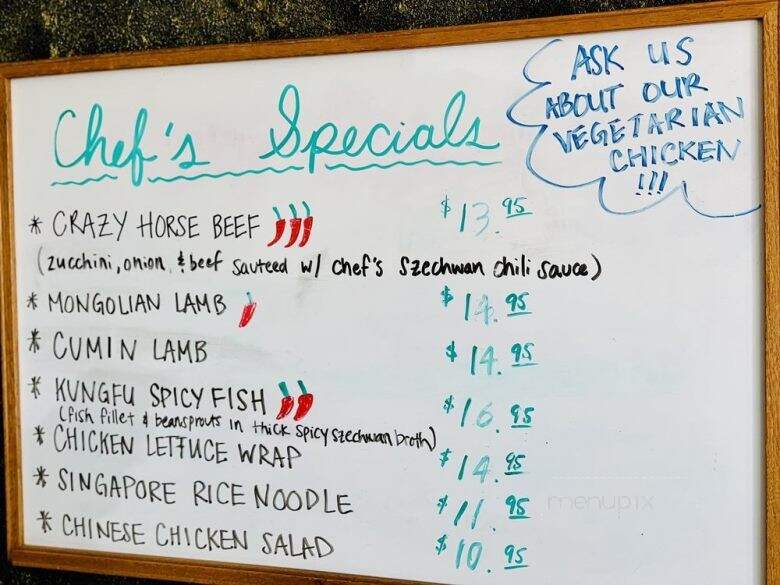 Chef's Specials
ASK US
ABOUT OUR
VEGETARIAN
CHICKEN
!!!
* CRAZY HORSE BEEF $13.95
(zucchini, onion, & beef sauteed w/ chef's Szechwan chili sauce)
* MONGOLIAN LAMB $14.95
* CUMIN LAMB $14.95
* KUNGFU SPICY FISH $16.95
(fish fillet & beansprouts in thick spicy szechwan broth)
* CHICKEN LETTUCE WRAP $14.95
* SINGAPORE RICE NOODLE $11.95
* CHINESE CHICKEN SALAD $10.95
menupix